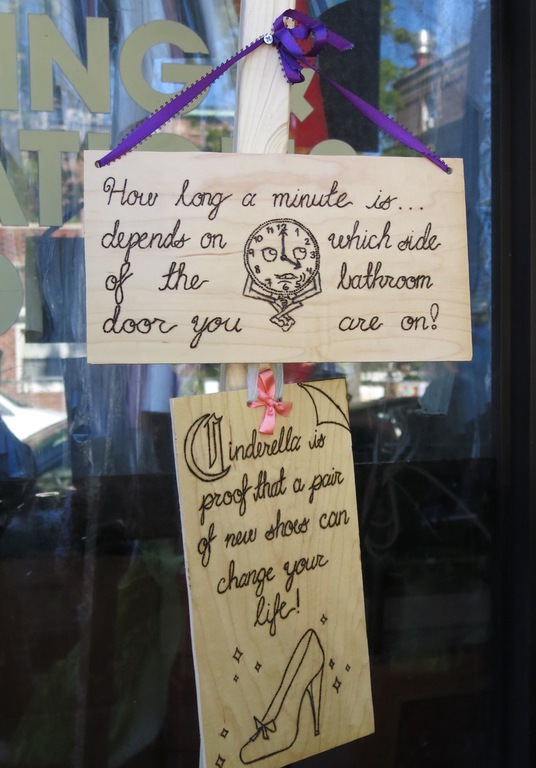 ING
How long a minute is...
depends on which side
of the bathroom
door you are on!
12 1 2 3 4 5 6 7 8 9 10 11
Cinderella is
proof that a pair
of new shoes can
change your
life!